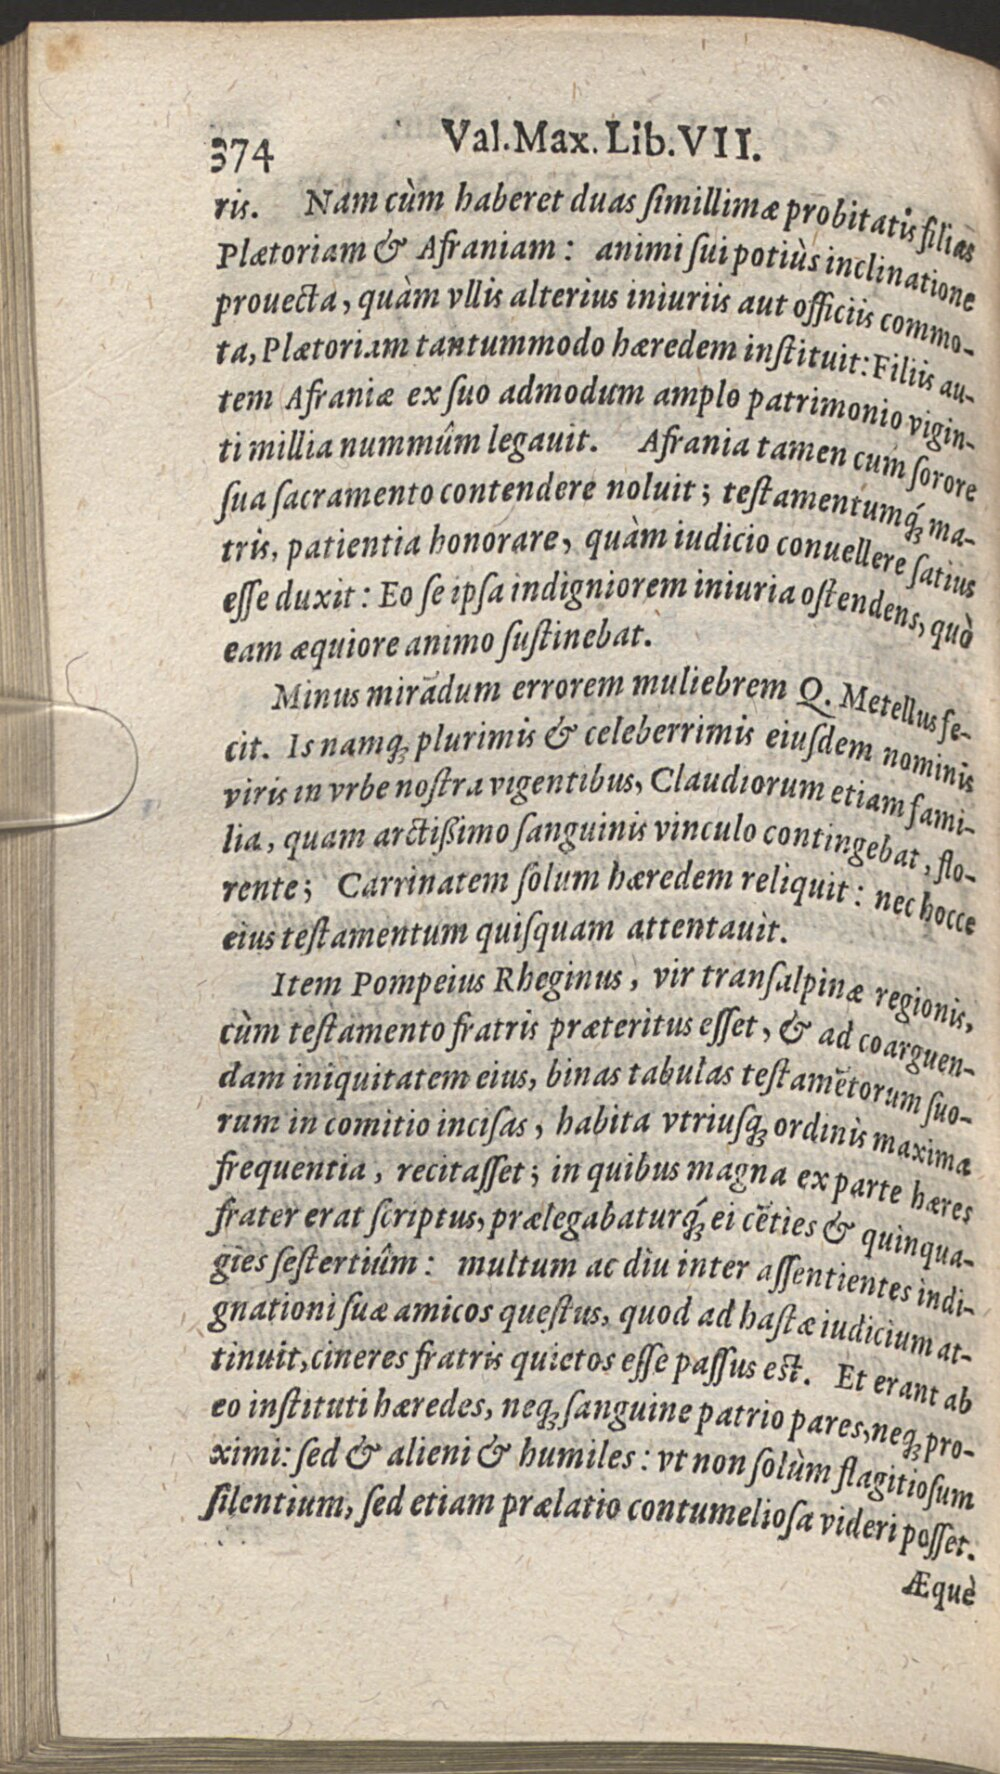 374 Val. Max. Lib. VII.
ris. Nam cùm haberet duas ſimillimæ probitatis filias
Plætoriam & Afraniam: animi ſui potiùs inclinatione
prouecta, quàm vllis alterius iniuriis aut officiis commo-
ta, Plætoriam tantummodo hæredem inſtituit: Filiis au-
tem Afraniæ ex ſuo admodum amplo patrimonio vigin-
ti millia nummûm legauit. Afrania tamen cum ſorore
ſua ſacramento contendere noluit; teſtamentumq́; ma-
tris, patientia honorare, quàm iudicio conuellere ſatius
eſſe duxit: Eo ſe ipſa indigniorem iniuria oſtendens, quò
eam æquiore animo ſuſtinebat.
Minus mirādum errorem muliebrem Q. Metellus fe-
cit. Is namq; plurimis & celeberrimis eiuſdem nominis
viris in vrbe noſtra vigentibus, Claudiorum etiam fami-
lia, quam arctißimo ſanguinis vinculo contingebat, flo-
rente; Carrinatem ſolum hæredem reliquit: nec hocce
eius teſtamentum quiſquam attentauit.
Item Pompeius Rheginus, vir tranſalpinæ regionis,
cùm teſtamento fratris præteritus eſſet, & ad coarguen-
dam iniquitatem eius, binas tabulas teſtamētorum ſuo-
rum in comitio inciſas, habita vtriuſq; ordinis maxima
frequentia, recitaſſet; in quibus magna ex parte hæres
frater erat ſcriptus, prælegabaturq́; ei cēties & quinqua-
gies ſeſtertiûm: multum ac diu inter aſſentientes indi-
gnationi ſuæ amicos queſtus, quod ad haſtæ iudicium at-
tinuit, cineres fratris quietos eſſe paſſus eſt. Et erant ab
eo inſtituti hæredes, neq; ſanguine patrio pares, neq; pro-
ximi: ſed & alieni & humiles: vt non ſolùm flagitioſum
ſilentium, ſed etiam prælatio contumelioſa videri poſſet.
Æquè